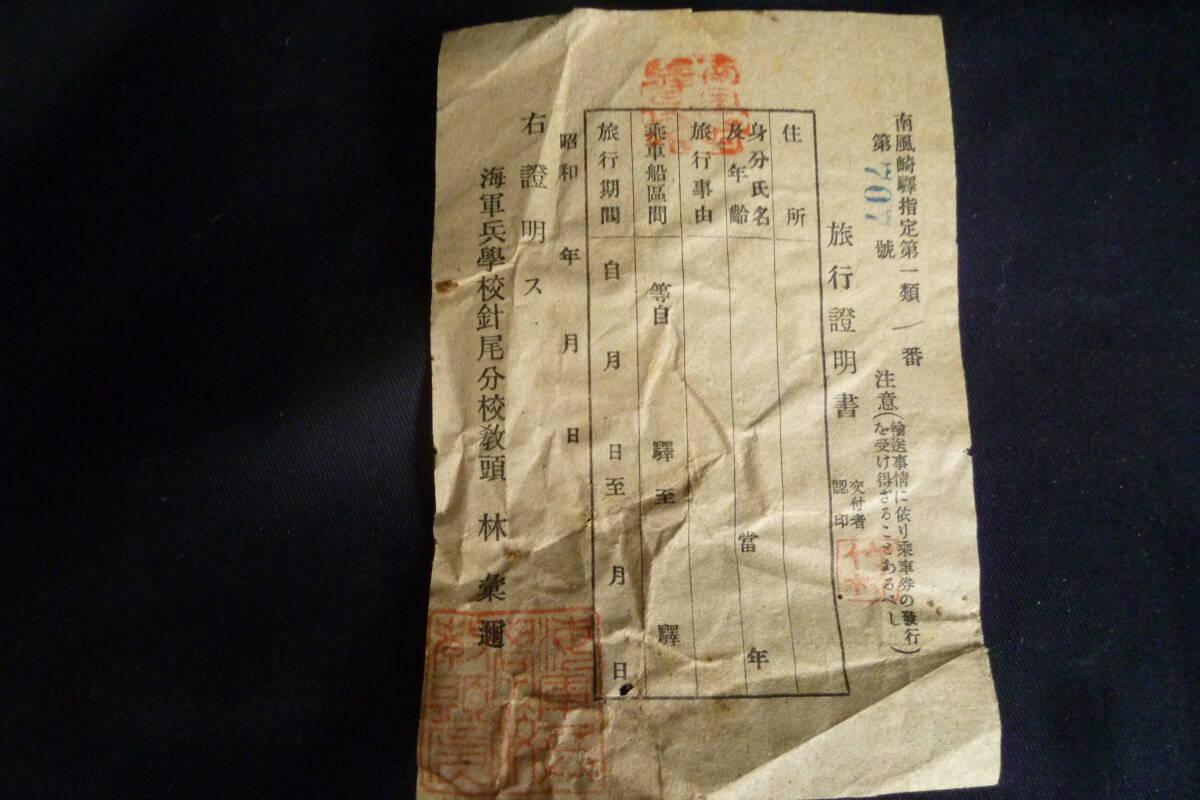 南風崎驛指定第一類 一番
第 號
注意(輸送事情に依り乘車券の發行
を受け得ざることあるべし)
旅行證明書
交付者
認印
住所
身分氏名
及年齡 當 年
旅行事由
乘車船區間 等自 驛至 驛
旅行期間 自 月 日至 月 日
昭和 年 月 日
右證明ス
海軍兵學校針尾分校教頭 林 彙邇